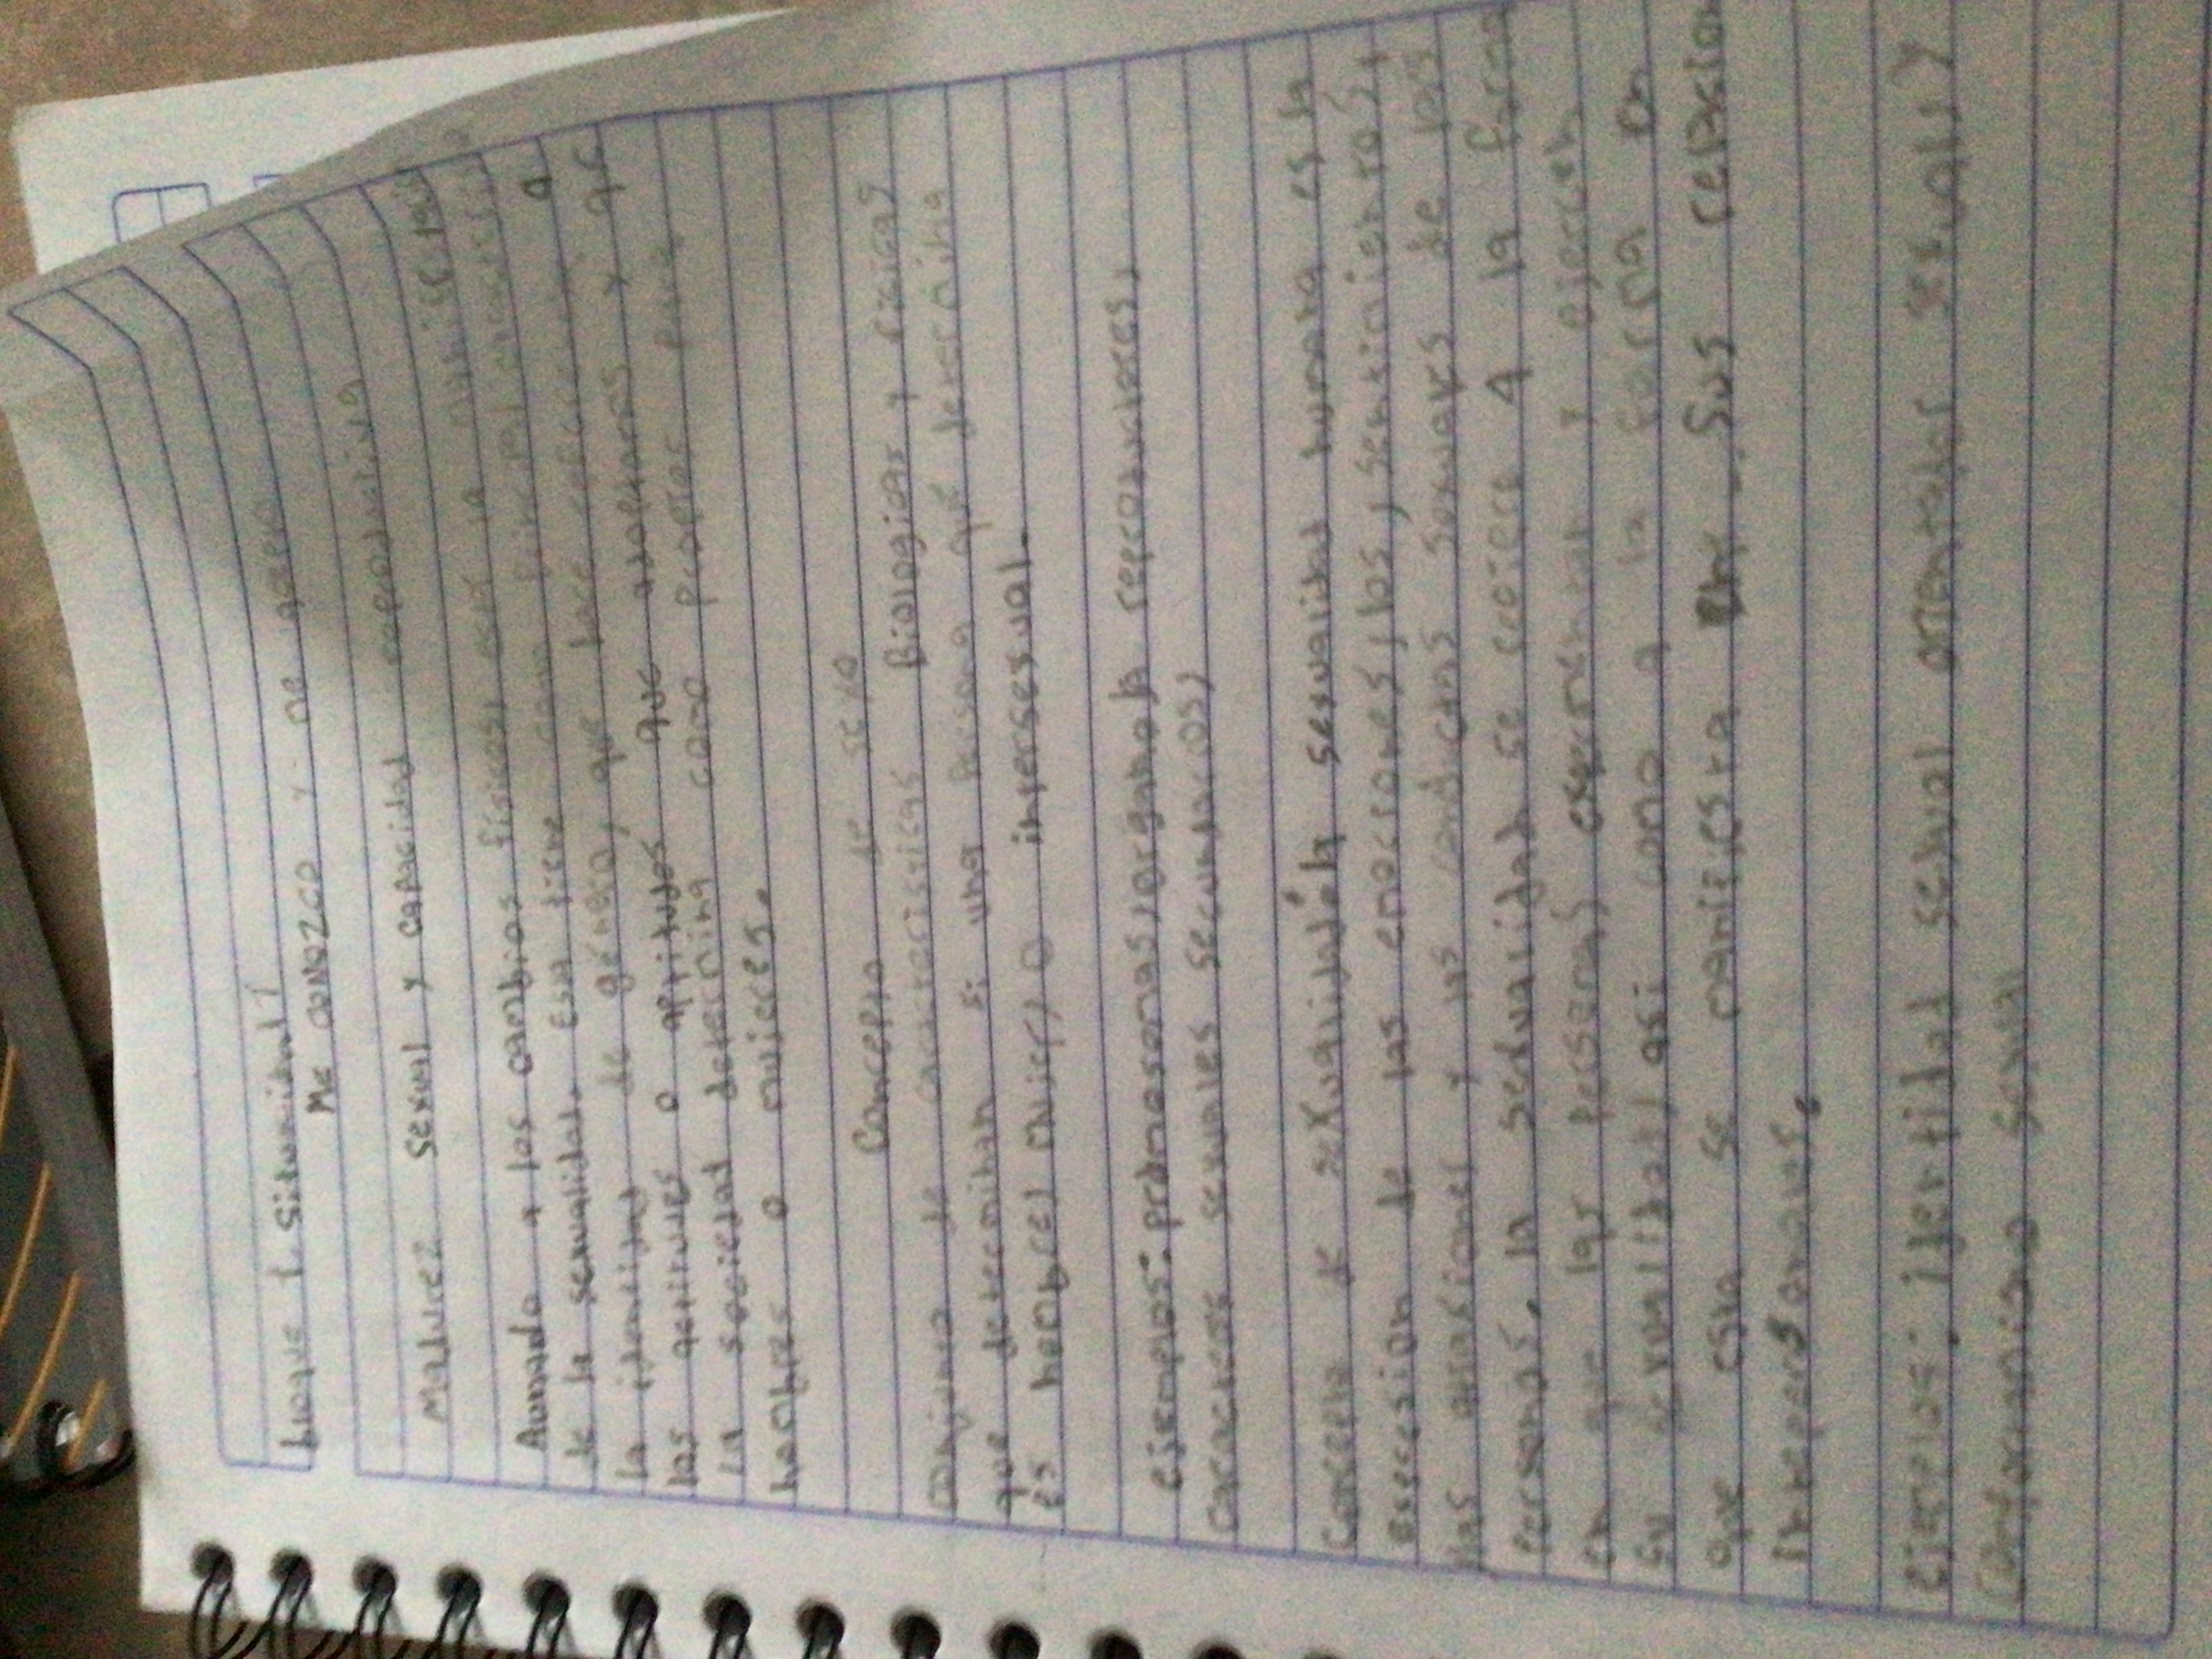 bloque 1. situacional 1
Me conozco y me
Madurez sexual y capacidad reproductiva
Aunado a los cambios físicos, está la
de la sexualidad. Esa tiene como a
la identidad de género, que hace y que
las actitudes o aptitudes que adoptamos y que
la sociedad determina como propios para
hombres o mujeres.
Concepto de sexo
conjunto de características Biologicas y fisicas
que determinan si una persona que determina
es hombre, mujer, o intersesual.
ejemplos: organos reproductores,
caracteres sexuales secundarios,
Concepto de sexualidad: sexualidad humana es la
expresion de las emociones, los, sentimientos,
las y las conductas sexuales de las
personas, la sexualidad se refiere a la forma
en que las personas experimentan y ejercen
su sexualidad, asi como a la forma en
que esta se manifiesta en sus relacion
interpersonales.
ejemplos: identidad sexual orientacion sexual y
sexual